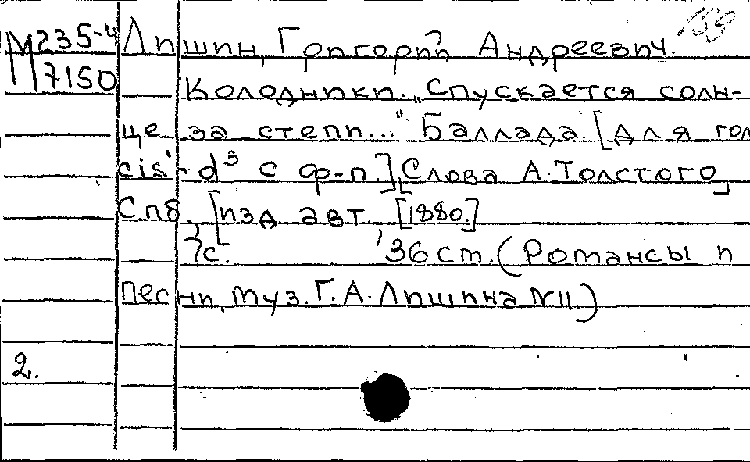 М 235-4 Лишин, Григорий Андреевич.
7150 Колодники. „Спускается солн-
це за степи..." Баллада [для гол
cis'- d³ с ф-п.] Слова А. Толстого
Спб., [изд. авт. [1880.]
7с. 36 ст. (Романсы и
песни, муз. Г. А. Лишина №11)
2.